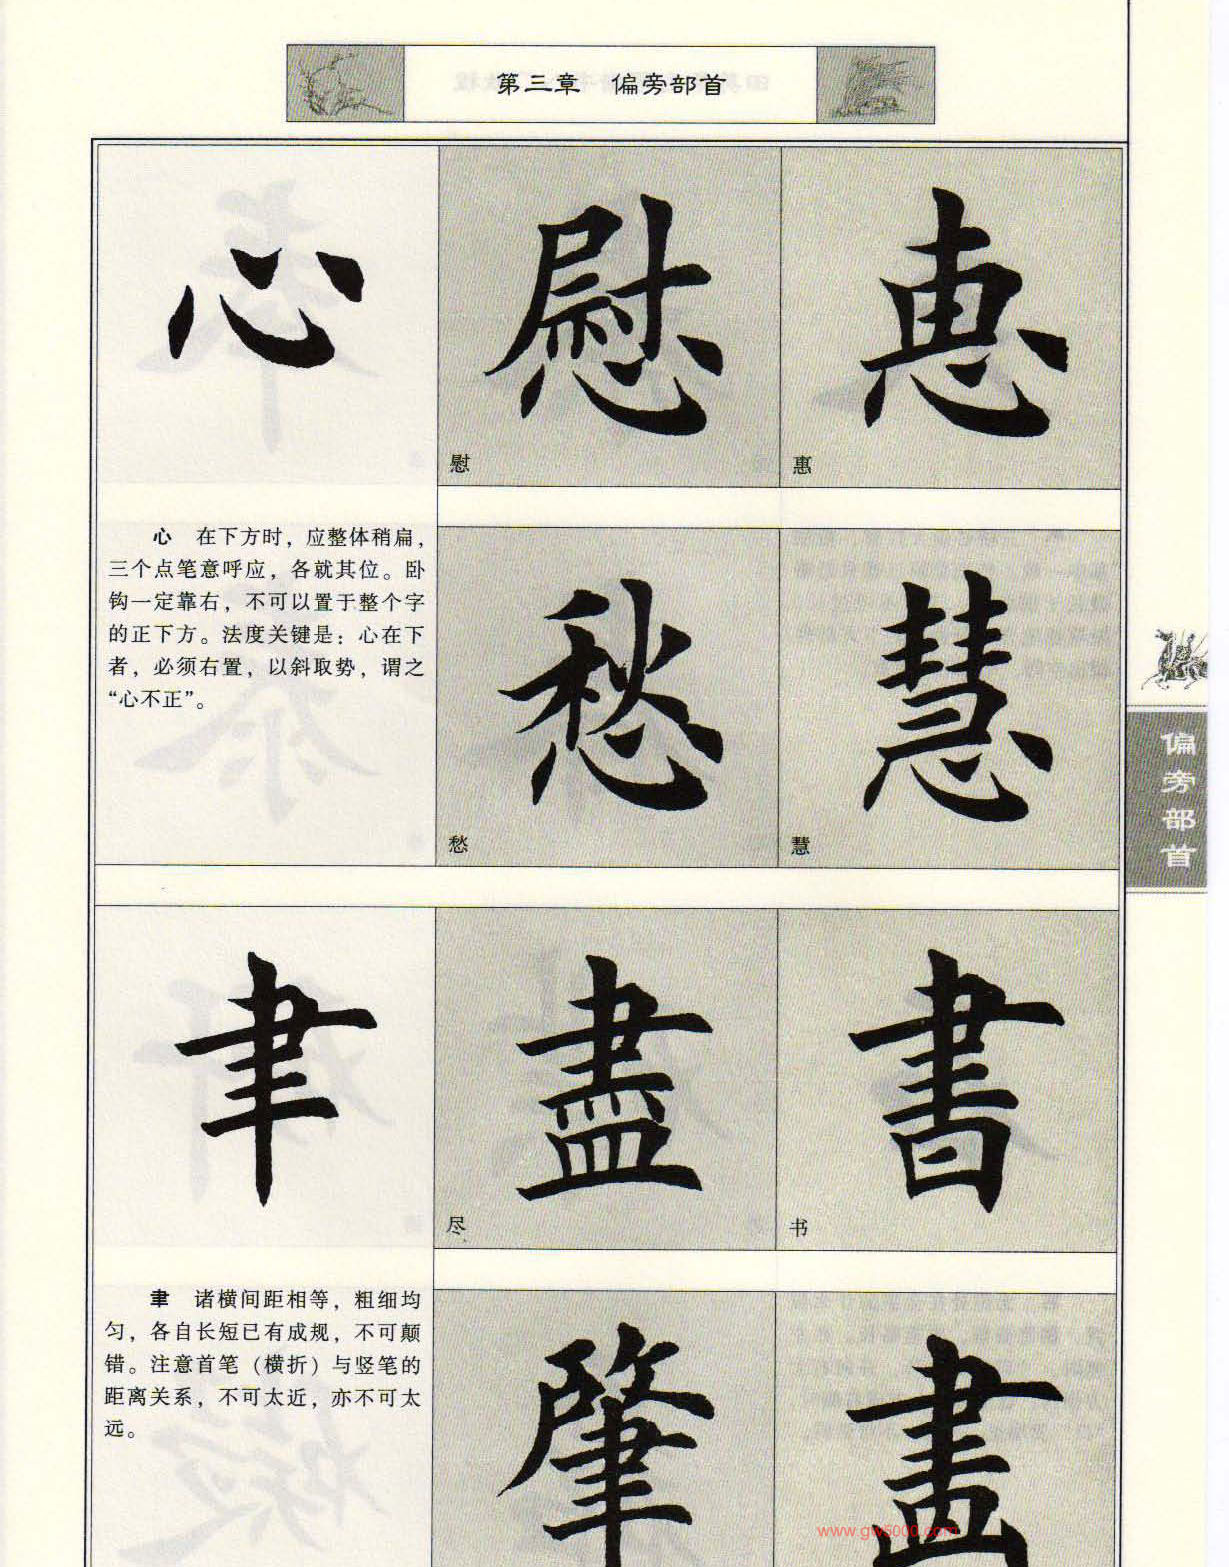 第三章 偏旁部首
心
慰
惠
慰
惠
心 在下方时，应整体稍扁，
三个点笔意呼应，各就其位。卧
钩一定靠右，不可以置于整个字
的正下方。法度关键是：心在下
者，必须右置，以斜取势，谓之
“心不正”。
愁
慧
愁
慧
偏旁部首
聿
盡
書
尽
书
聿 诸横间距相等，粗细均
匀，各自长短已有成规，不可颠
错。注意首笔（横折）与竖笔的
距离关系，不可太近，亦不可太
远。
肇
畫
www.gw5000.com